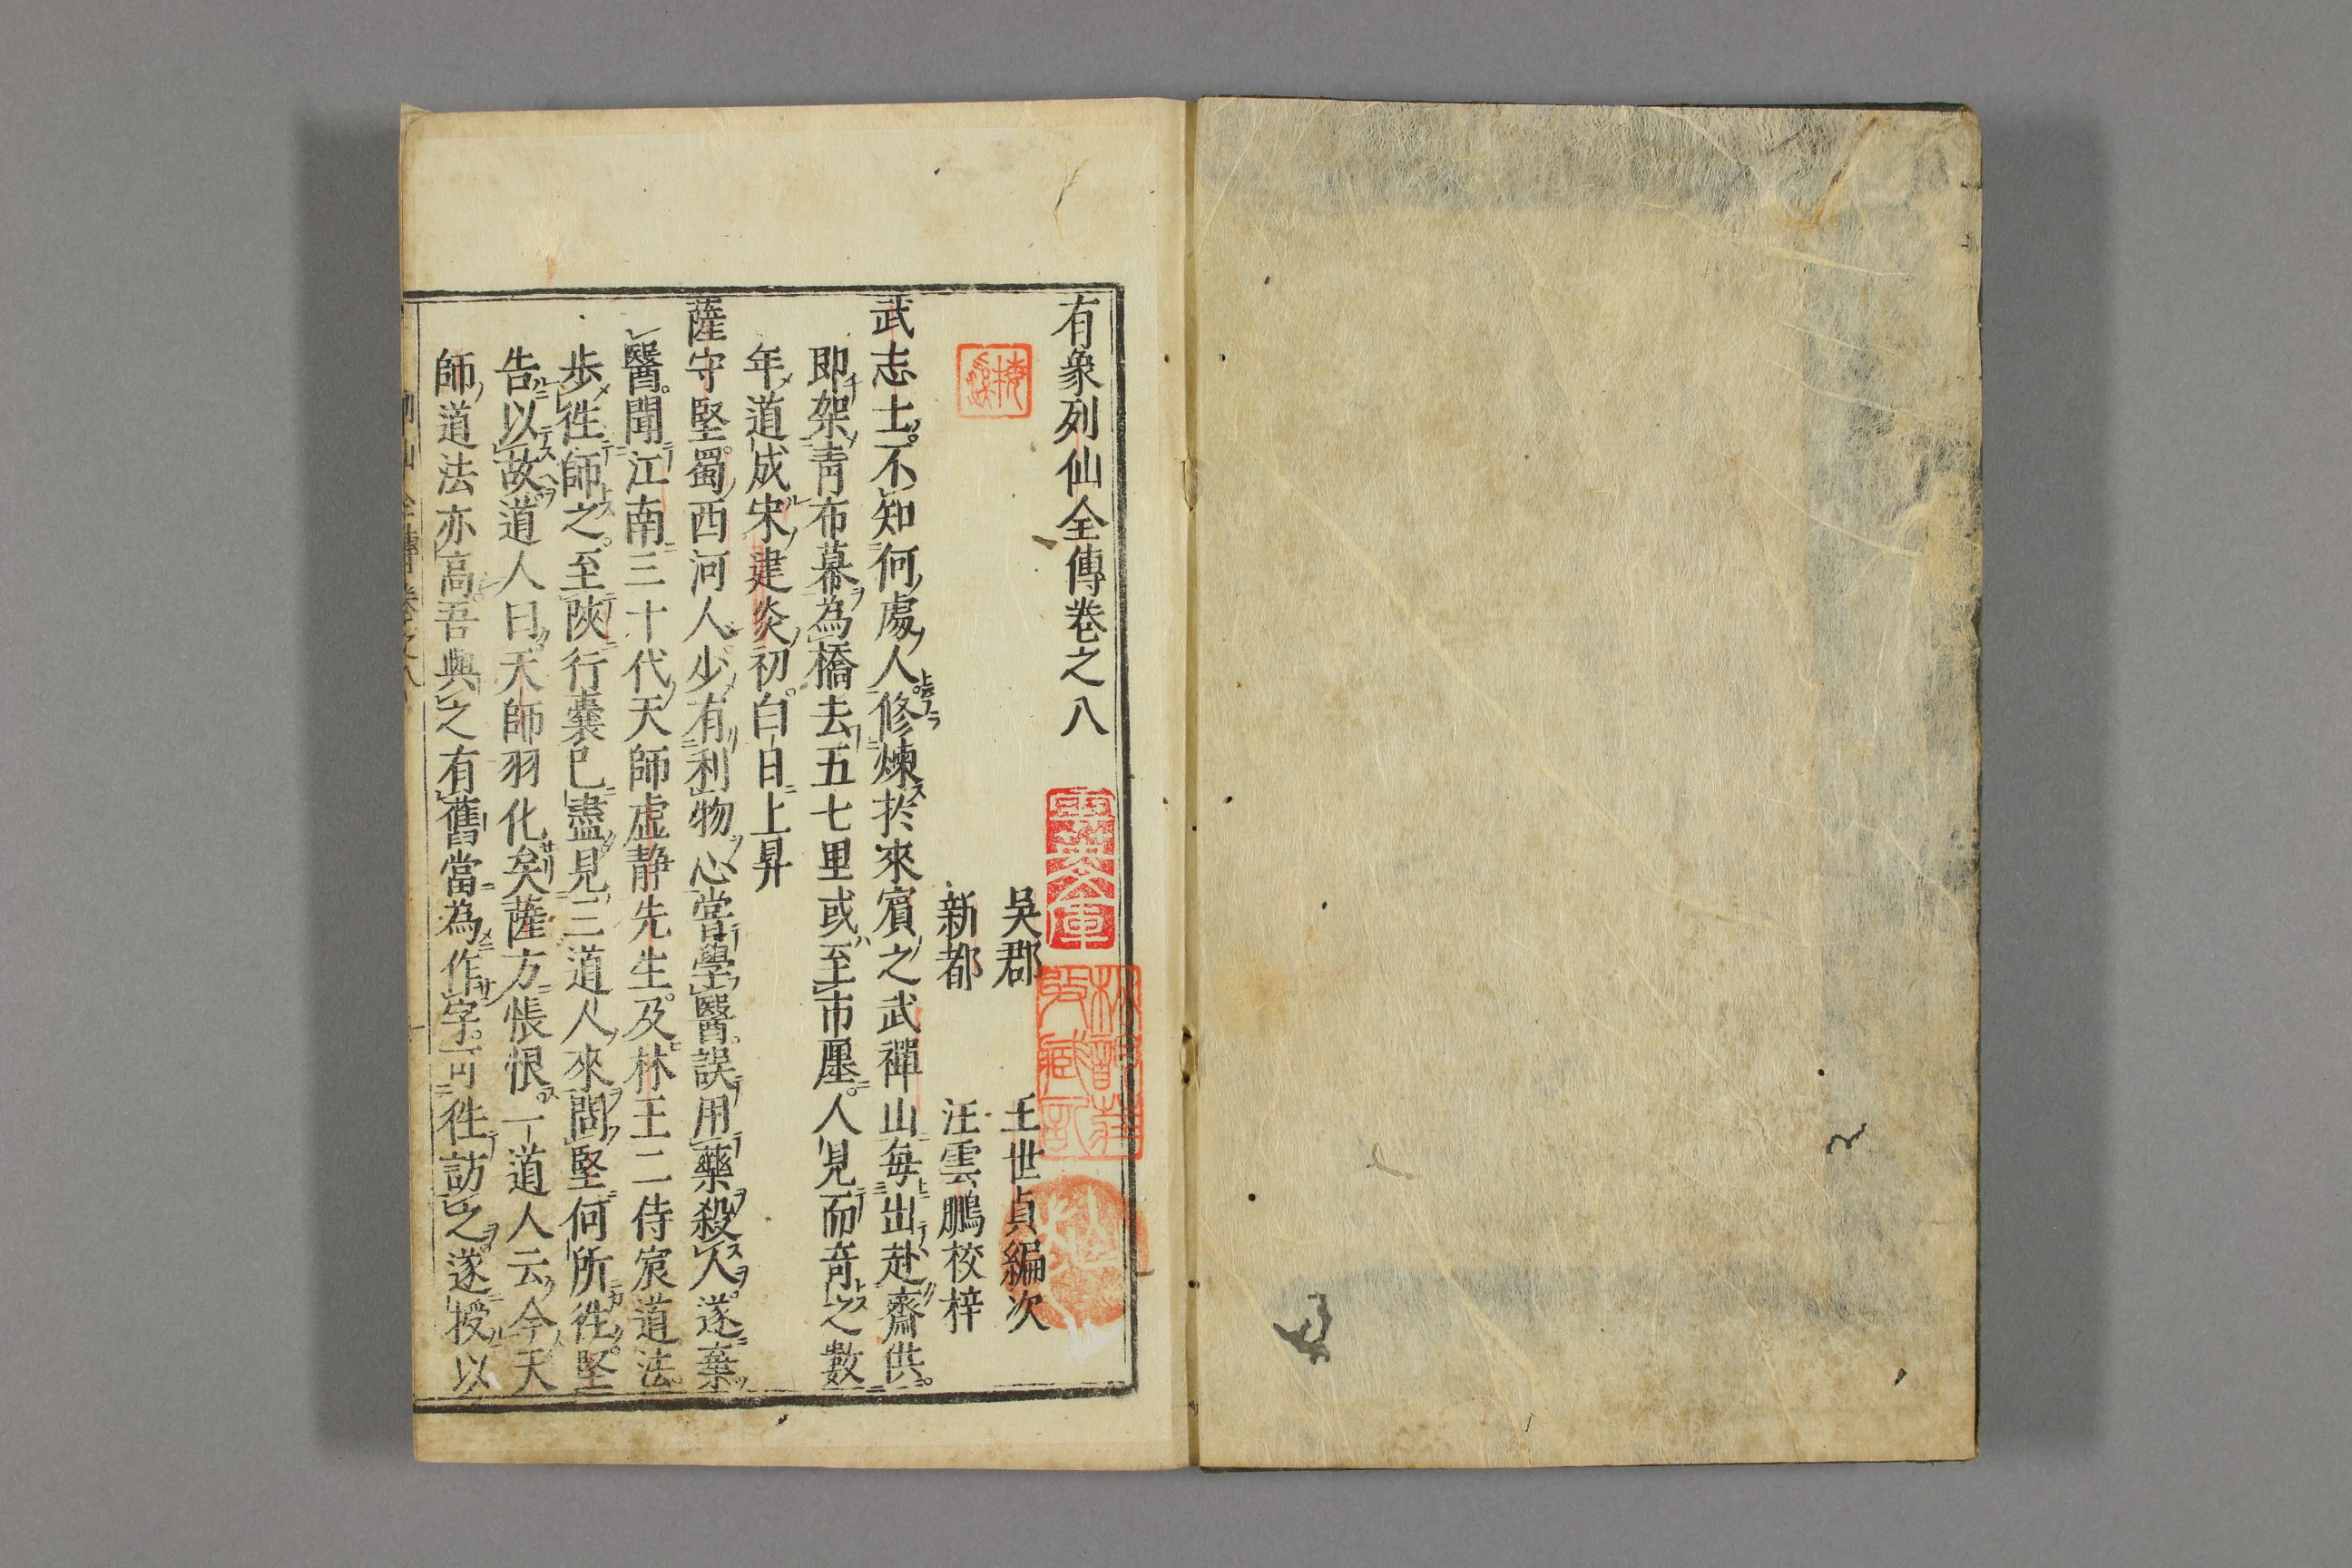 有象列仙全傳卷之八
吳郡 王世貞編次
新都 汪雲鵬校梓
武志士不知何處人修煉於來賓之武禪山每出赴齋供
即架青布幕為橋去五七里或至市廛人見而奇之數
年道成宋建炎初白日上昇
薩守堅蜀西河人少有利物心嘗學醫誤用藥殺人遂棄
醫聞江南三十代天師虛静先生及林王二侍宸道法
步徃師之至陝行囊已盡見三道人來問堅何所徃堅
告以故道人曰天師羽化矣薩方悵恨一道人云今天
師道法亦高吾與之有舊當為作字可徃訪之遂授以